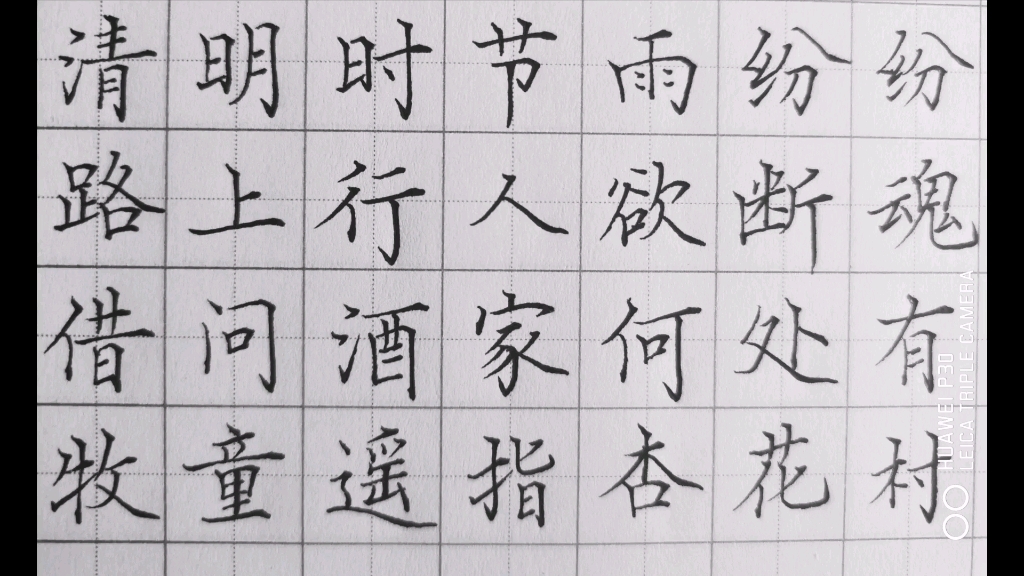 清明时节雨纷纷
路上行人欲断魂
借问酒家何处有
牧童遥指杏花村
HUAWEI P30
LEICA TRIPLE CAMERA